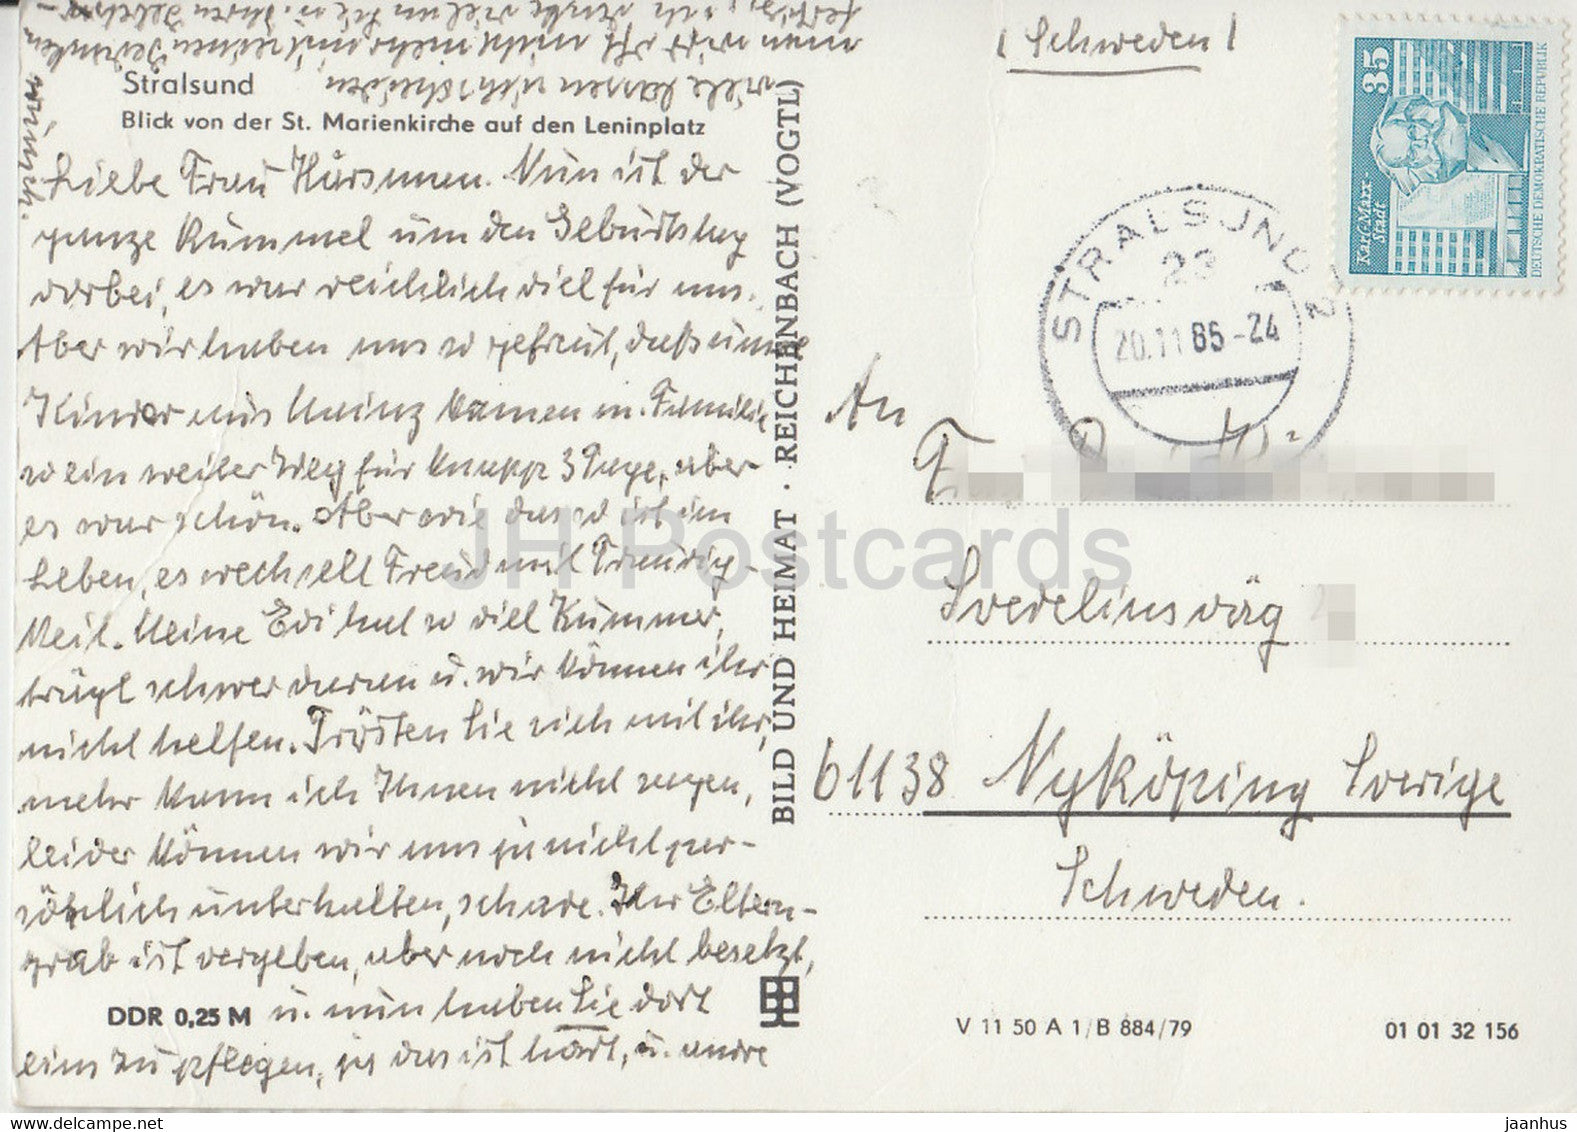 Stralsund
Blick von der St. Marienkirche auf den Leninplatz
Liebe Frau Hårsmnen. Nun ist der
ganze Rummel um den Geburtstag
vorbei, es war reichlich viel für uns.
Aber wir haben uns so gefreut, daß unsre
Kinder aus Mainz kamen m. Familie
so ein weiter Weg für knapp 3 Tage, aber
es war schön. Aber wie das so ist im
Leben, es wechselt Freud mit Traurig-
keit. Meine Edi hat so viel Kummer,
trägt schwer daran u. wir können ihr
nicht helfen. Trösten Sie sich mit ihr,
mehr kann ich Ihnen nicht sagen,
leider können wir uns ja nicht per-
söhnlich unterhalten, schade. Ihr Eltern-
grab ist vergeben, aber noch nicht besetzt,
u. nun haben Sie dort
eins zu pflegen, ja das ist hart, u. andre
viele lassen sich scheiden,
man wird oft nicht mehr mit seinen Gedanken
fertig. Ich denke viel an Sie u. Ihren
DDR 0,25 M
BILD UND HEIMAT · REICHENBACH (VOGTL)
( Schweden )
35
Karl-Marx-
Stadt
DEUTSCHE DEMOKRATISCHE REPUBLIK
STRALSUND 2
23
20.11 86-24
An
Svedelinsväg
61138 Nyköping Sverige
Schweden.
V 11 50 A 1/B 884/79
01 01 32 156
JH Postcards
www.delcampe.net
jaanhus